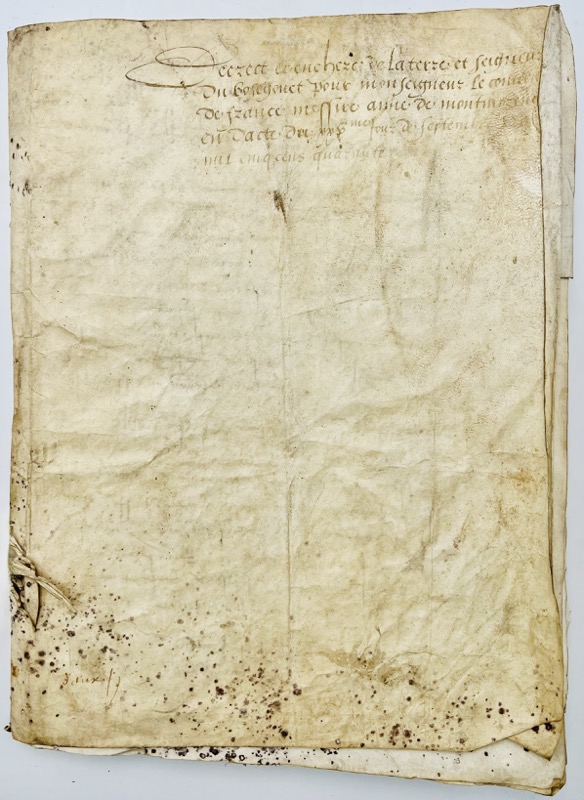 Decrect et enchere de la terre et seigneur
du bosgouet pour monseigneur le conne
de france messire anne de montmorenc
en dacte du xxx^me jour de septem
mil cinq cens quarante